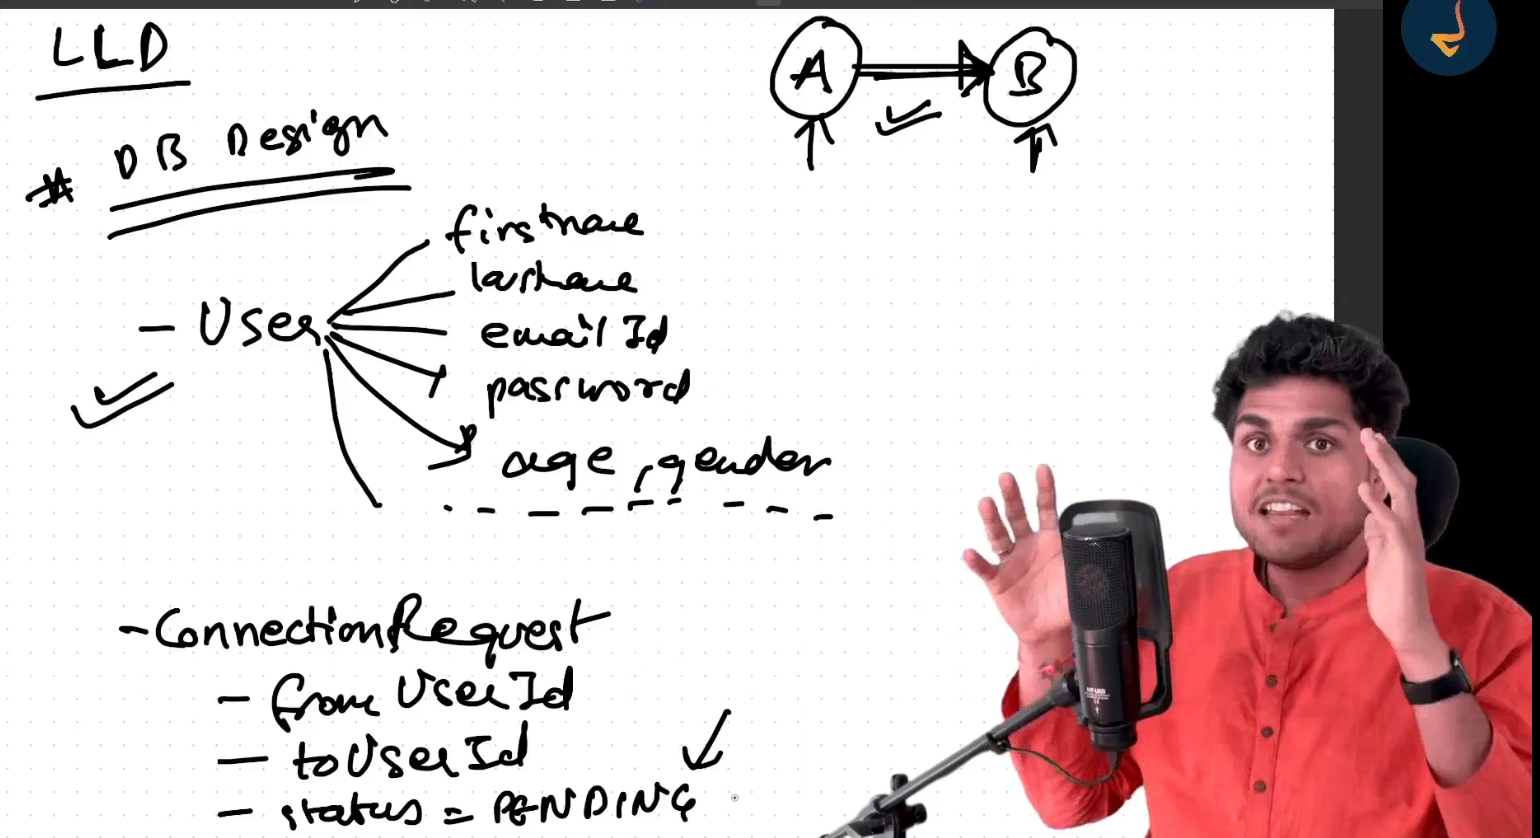 LLD
* DB Design
A B
- User
firstname
lastname
emailId
password
age, gender
- ConnectionRequest
- fromUserId
- toUserId
- status = PENDING